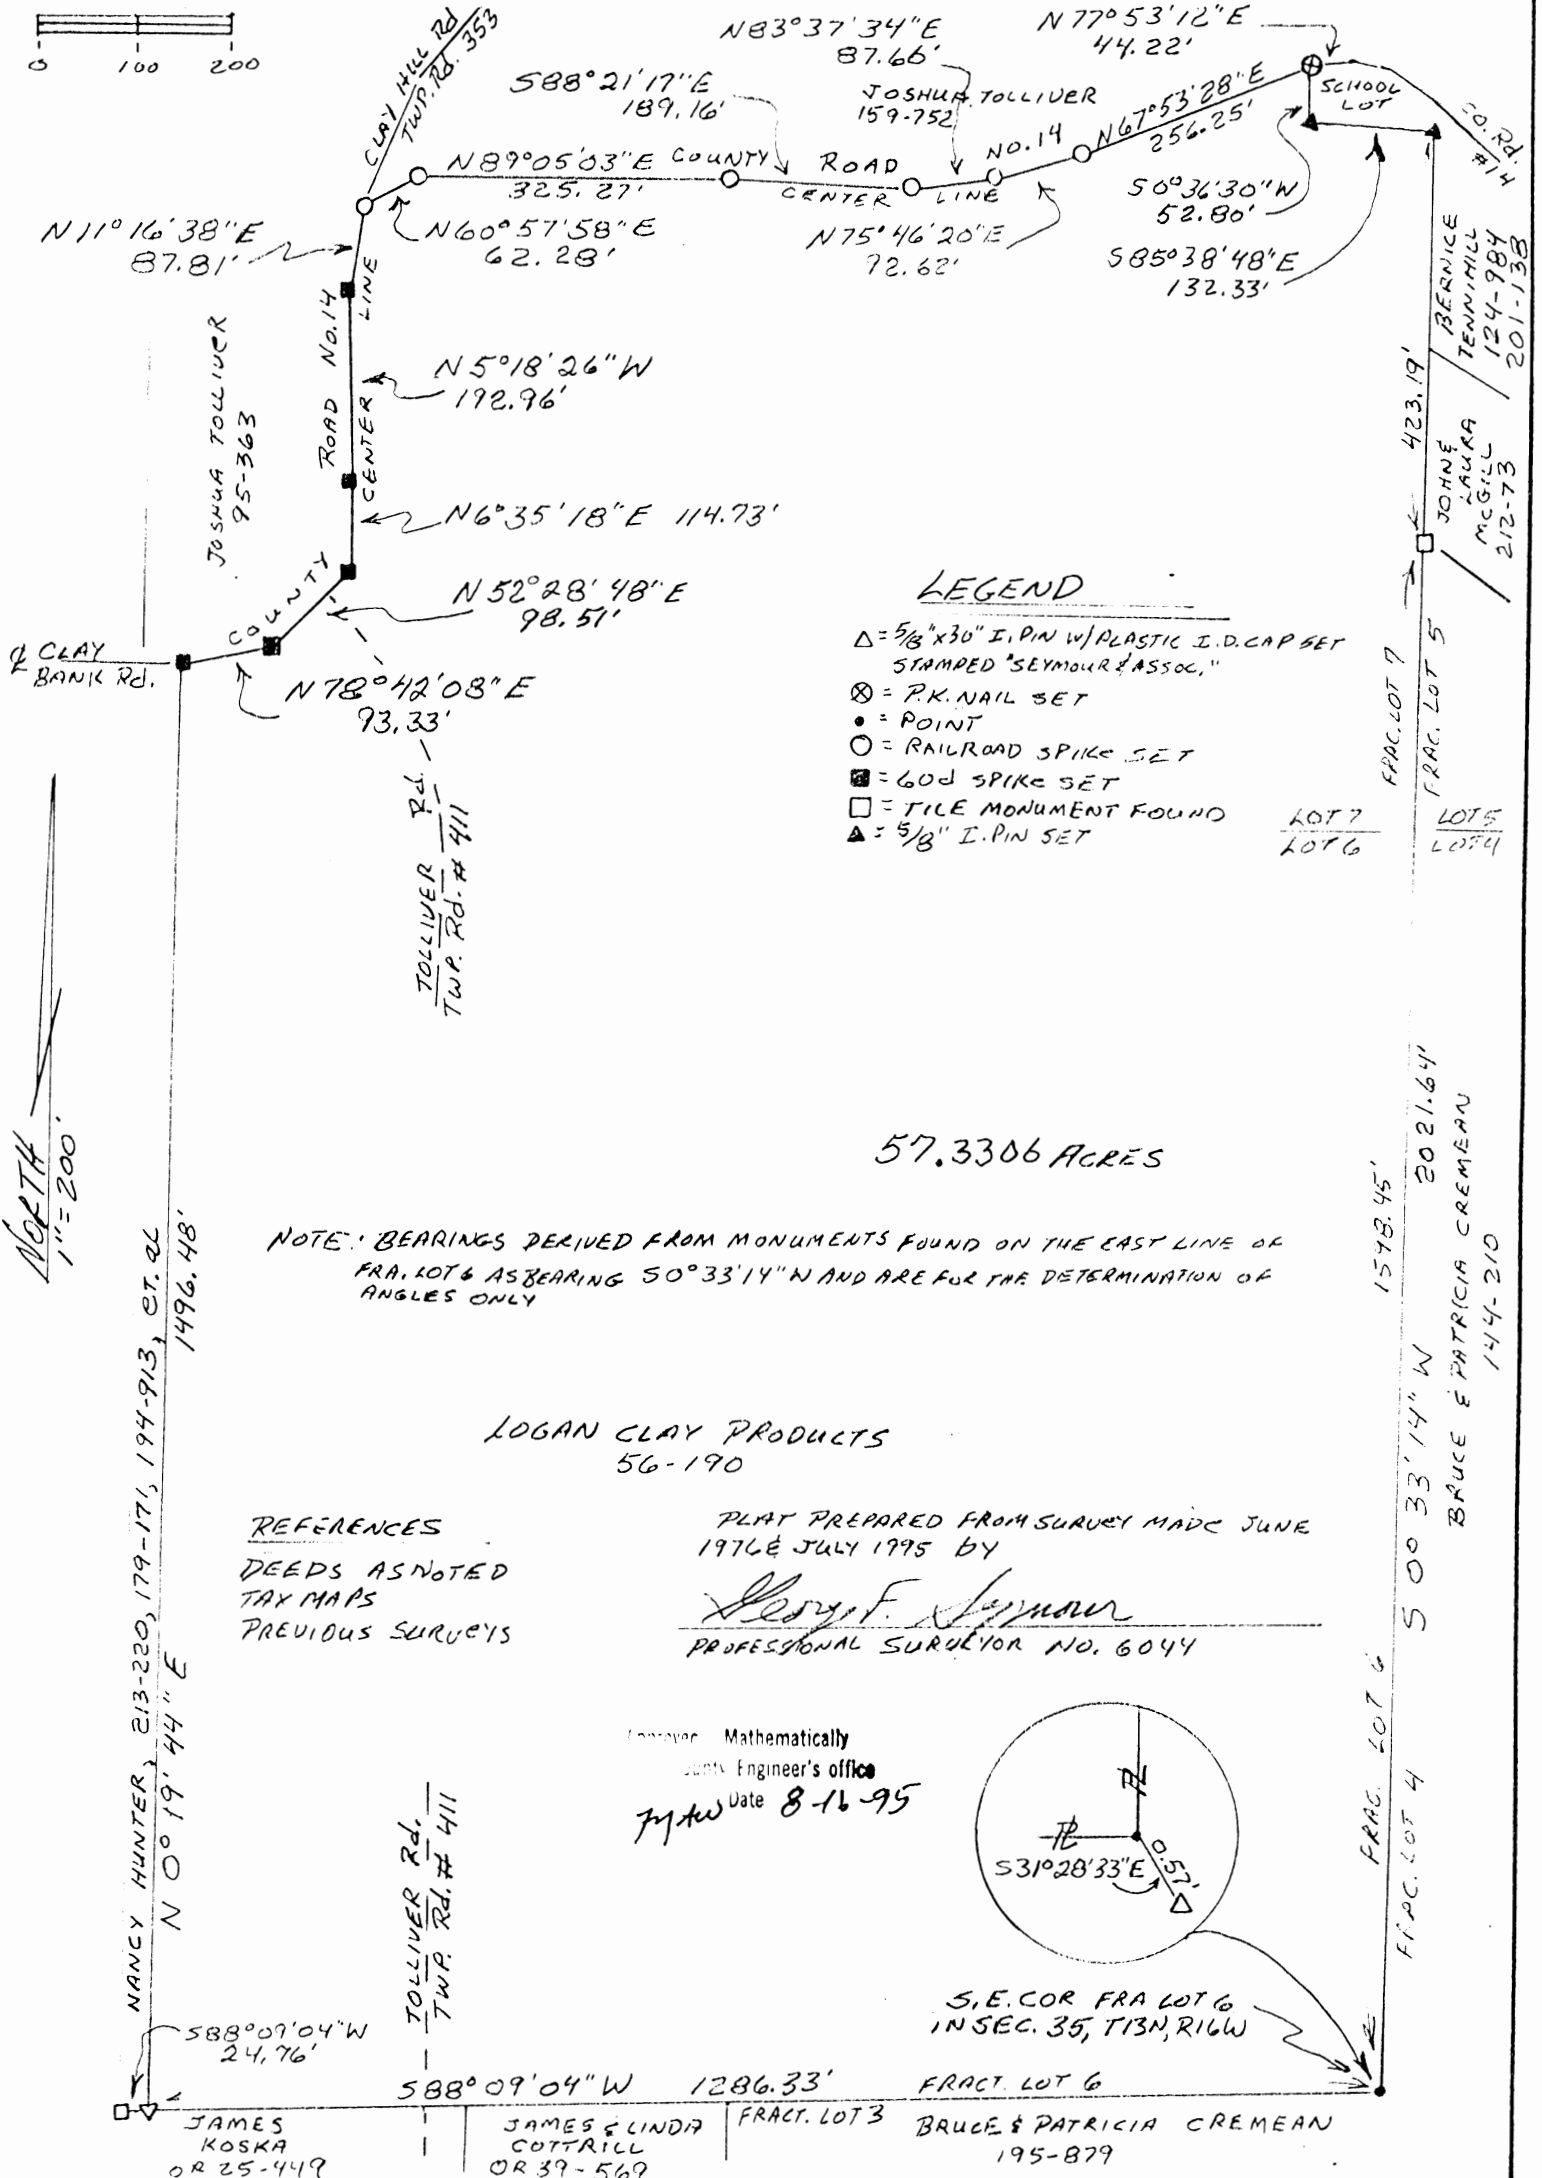 0 100 200
CLAY HILL Rd
TWP. Rd. 353
N83°37'34"E
87.66'
N77°53'12"E
44.22'
S88°21'17"E
189.16'
JOSHUA TOLLIVER
159-752
N67°53'28"E
256.25'
SCHOOL
LOT
CO. Rd.
#14
N89°05'03"E
325.27'
COUNTY ROAD NO.14
CENTER LINE
S0°36'30"W
52.80'
N11°16'38"E
87.81'
N60°57'58"E
62.28'
N75°46'20"E
92.62'
S85°38'48"E
132.33'
BERNICE
TENNIHILL
124-984
201-138
JOSHUA TOLLIVER
95-363
COUNTY ROAD NO.14
CENTER LINE
N5°18'26"W
192.96'
423.19'
JOHN &
LAURA
McGILL
212-73
N6°35'18"E 114.73'
N52°28'48"E
98.51'
℄ CLAY
BANK Rd.
N78°42'08"E
93.33'
TOLLIVER Rd.
TWP. Rd. # 411
LEGEND
△ = 5/8"x30" I. PIN W/PLASTIC I.D. CAP SET
STAMPED "SEYMOUR & ASSOC."
⊗ = P.K. NAIL SET
• = POINT
○ = RAILROAD SPIKE SET
■ = 60d SPIKE SET
□ = TILE MONUMENT FOUND
▲ = 5/8" I. PIN SET
FRAC. LOT 7
FRAC. LOT 5
LOT 7
LOT 6
LOT 5
LOT 4
NORTH
1"=200'
57.3306 ACRES
2021.64'
1598.45'
S 0° 33' 14" W
BRUCE & PATRICIA CREMEAN
144-210
NOTE: BEARINGS DERIVED FROM MONUMENTS FOUND ON THE EAST LINE OF
FRA. LOT 6 AS BEARING S0°33'14"W AND ARE FOR THE DETERMINATION OF
ANGLES ONLY
1496.48'
NANCY HUNTER, 213-220, 179-171, 194-913, ET. AL
N 0° 19' 44" E
LOGAN CLAY PRODUCTS
56-190
REFERENCES
DEEDS AS NOTED
TAX MAPS
PREVIOUS SURVEYS
PLAT PREPARED FROM SURVEY MADE JUNE
1976 & JULY 1995 BY
George F. Seymour
PROFESSIONAL SURVEYOR NO. 6044
Approved Mathematically
County Engineer's office
Date 8-16-95
S31°28'33"E
0.57'
FRAC. LOT 6
FRAC. LOT 4
TOLLIVER Rd.
TWP. Rd. # 411
S.E. COR FRA LOT 6
IN SEC. 35, T13N, R16W
S88°09'04"W
24.76'
S88°09'04"W 1286.33' FRACT. LOT 6
JAMES
KOSKA
OR 25-449
JAMES & LINDA
COTTRILL
OR 39-569
FRACT. LOT 3
BRUCE & PATRICIA CREMEAN
195-879